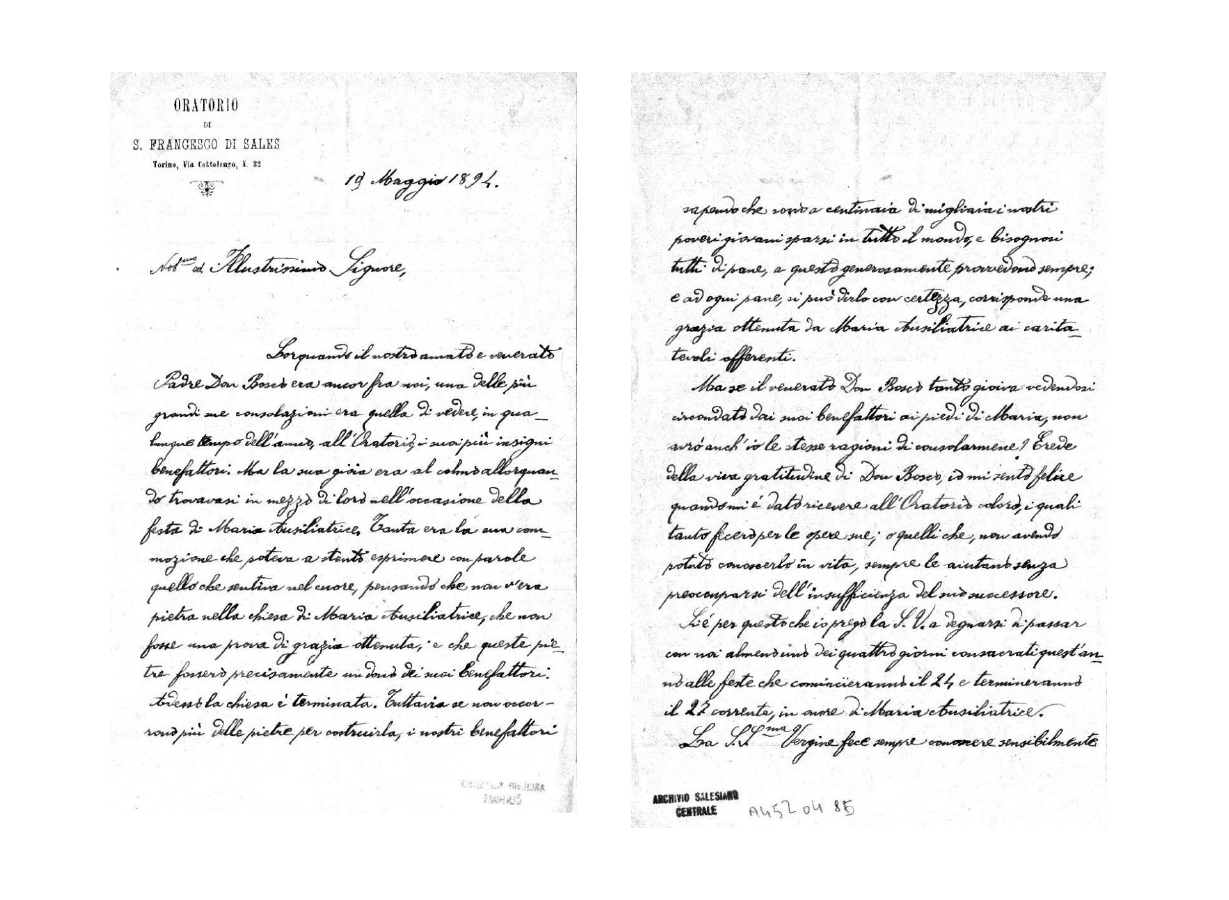 ORATORIO
DI
S. FRANCESCO DI SALES
Torino, Via Cottolengo, N. 32
19 Maggio 1894.
Nob.mo ed Illustrissimo Signore,
Lorquando il nostro amato e venerato
Padre Don Bosco era ancor fra noi, una delle più
grandi sue consolazioni era quella di vedere, in qua_
lunque tempo dell'anno, all'Oratorio, i suoi più insigni
benefattori. Ma la sua gioia era al colmo allorquan_
do trovavasi in mezzo di loro nell'occasione della
festa di Maria Ausiliatrice. Tanta era la sua com_
mozione che poteva a stento esprimere con parole
quello che sentiva nel cuore, pensando che non v'era
pietra nella chiesa di Maria Ausiliatrice, che non
fosse una prova di grazia ottenuta, e che queste pie_
tre fossero precisamente un dono dei suoi benefattori.
Adesso la chiesa è terminata. Tuttavia se non occor-
rono più delle pietre per costruirla, i nostri benefattori
sapendo che sono a centinaia di migliaia i nostri
poveri giovani sparsi in tutto il mondo, e bisognosi
tutti di pane, a questo generosamente provvedono sempre;
e ad ogni pane, si può dirlo con certezza, corrisponde una
grazia ottenuta da Maria Ausiliatrice ai carita_
tevoli offerenti.
Ma se il venerato Don Bosco tanto gioiva vedendosi
circondato dai suoi benefattori ai piedi di Maria, non
avrò anch'io le stesse ragioni di consolarmene? Erede
della viva gratitudine di Don Bosco, io mi sento felice
quando mi è dato ricevere all'Oratorio coloro, i quali
tanto fecero per le opere sue; o quelli che, non avendo
potuto conoscerlo in vita, sempre le aiutano senza
preoccuparsi dell'insufficienza del suo successore.
Si è per questo che io prego la S. V. a degnarsi di passar
con noi almeno uno dei quattro giorni consacrati quest'an_
no alle feste che comincieranno il 24 e termineranno
il 27 corrente, in onore di Maria Ausiliatrice.
La SS.ma Vergine fece sempre conoscere sensibilmente
ARCHIVIO SALESIANO
CENTRALE
A452 04 85